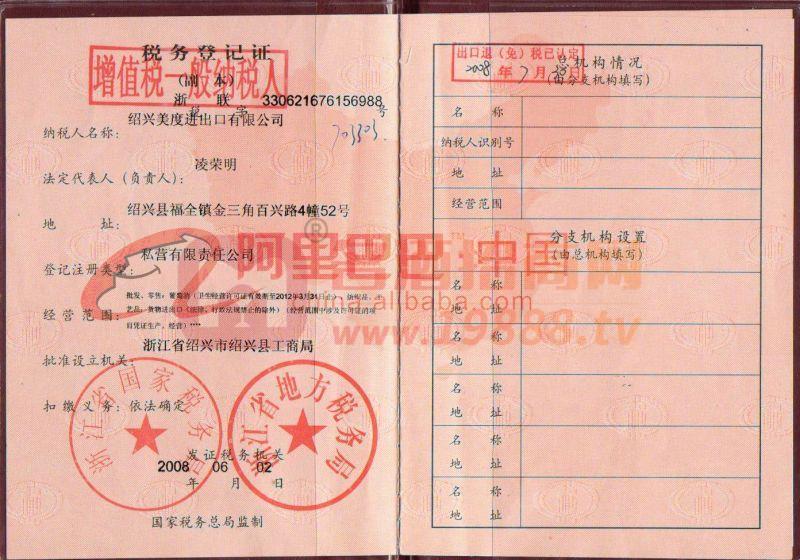 税务登记证
增值税一般纳税人
(副本)
浙 联 330621676156988
税 字 号
纳税人名称: 绍兴美度进出口有限公司
703303
法定代表人(负责人): 凌荣明
地 址: 绍兴县福全镇金三角百兴路4幢52号
登记注册类型: 私营有限责任公司
经营范围: 批发、零售:葡萄酒(卫生经营许可证有效期至2012年3月31日止)、纺织品、
艺品;货物进出口(法律、行政法规禁止的除外)(经营范围中涉及许可证的项
目凭证生产、经营)****
批准设立机关: 浙江省绍兴市绍兴县工商局
扣缴义务: 依法确定
浙江省国家税务局
浙江省地方税务局
发证税务机关
2008 06 02
年 月 日
国家税务总局监制
出口退(免)税已认定
2008年7月
总机构情况
(由分支机构填写)
名 称
纳税人识别号
地 址
经营范围
分支机构设置
(由总机构填写)
名 称
地 址
名 称
地 址
名 称
地 址
名 称
地 址
名 称
地 址
阿里巴巴
中国
china.alibaba.com
www.19888.tv